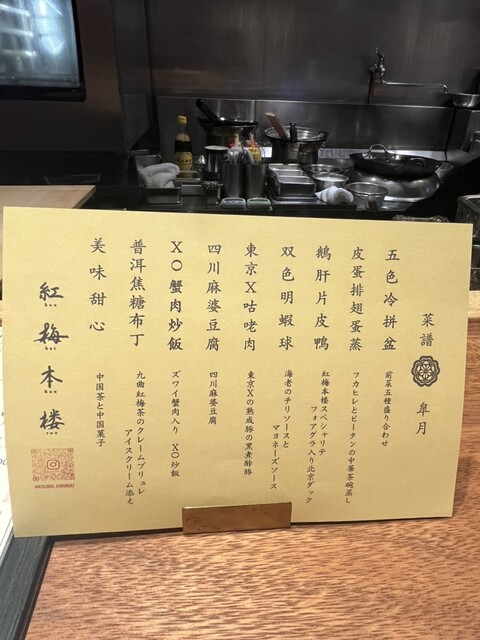 菜譜 皐月
五色冷拼盆
前菜五種盛り合わせ
皮蛋排翅蛋蒸
フカヒレとピータンの中華茶碗蒸し
鵝肝片皮鴨
紅梅本楼スペシャリテ
フォアグラ入り北京ダック
双色明蝦球
海老のチリソースと
マヨネーズソース
東京X咕咾肉
東京Xの熟成豚の黒煮酢豚
四川麻婆豆腐
四川麻婆豆腐
XO蟹肉炒飯
ズワイ蟹肉入り XO炒飯
普洱焦糖布丁
九曲紅梅茶のクレームブリュレ
アイスクリーム添え
美味甜心
中国茶と中国菓子
紅梅本楼